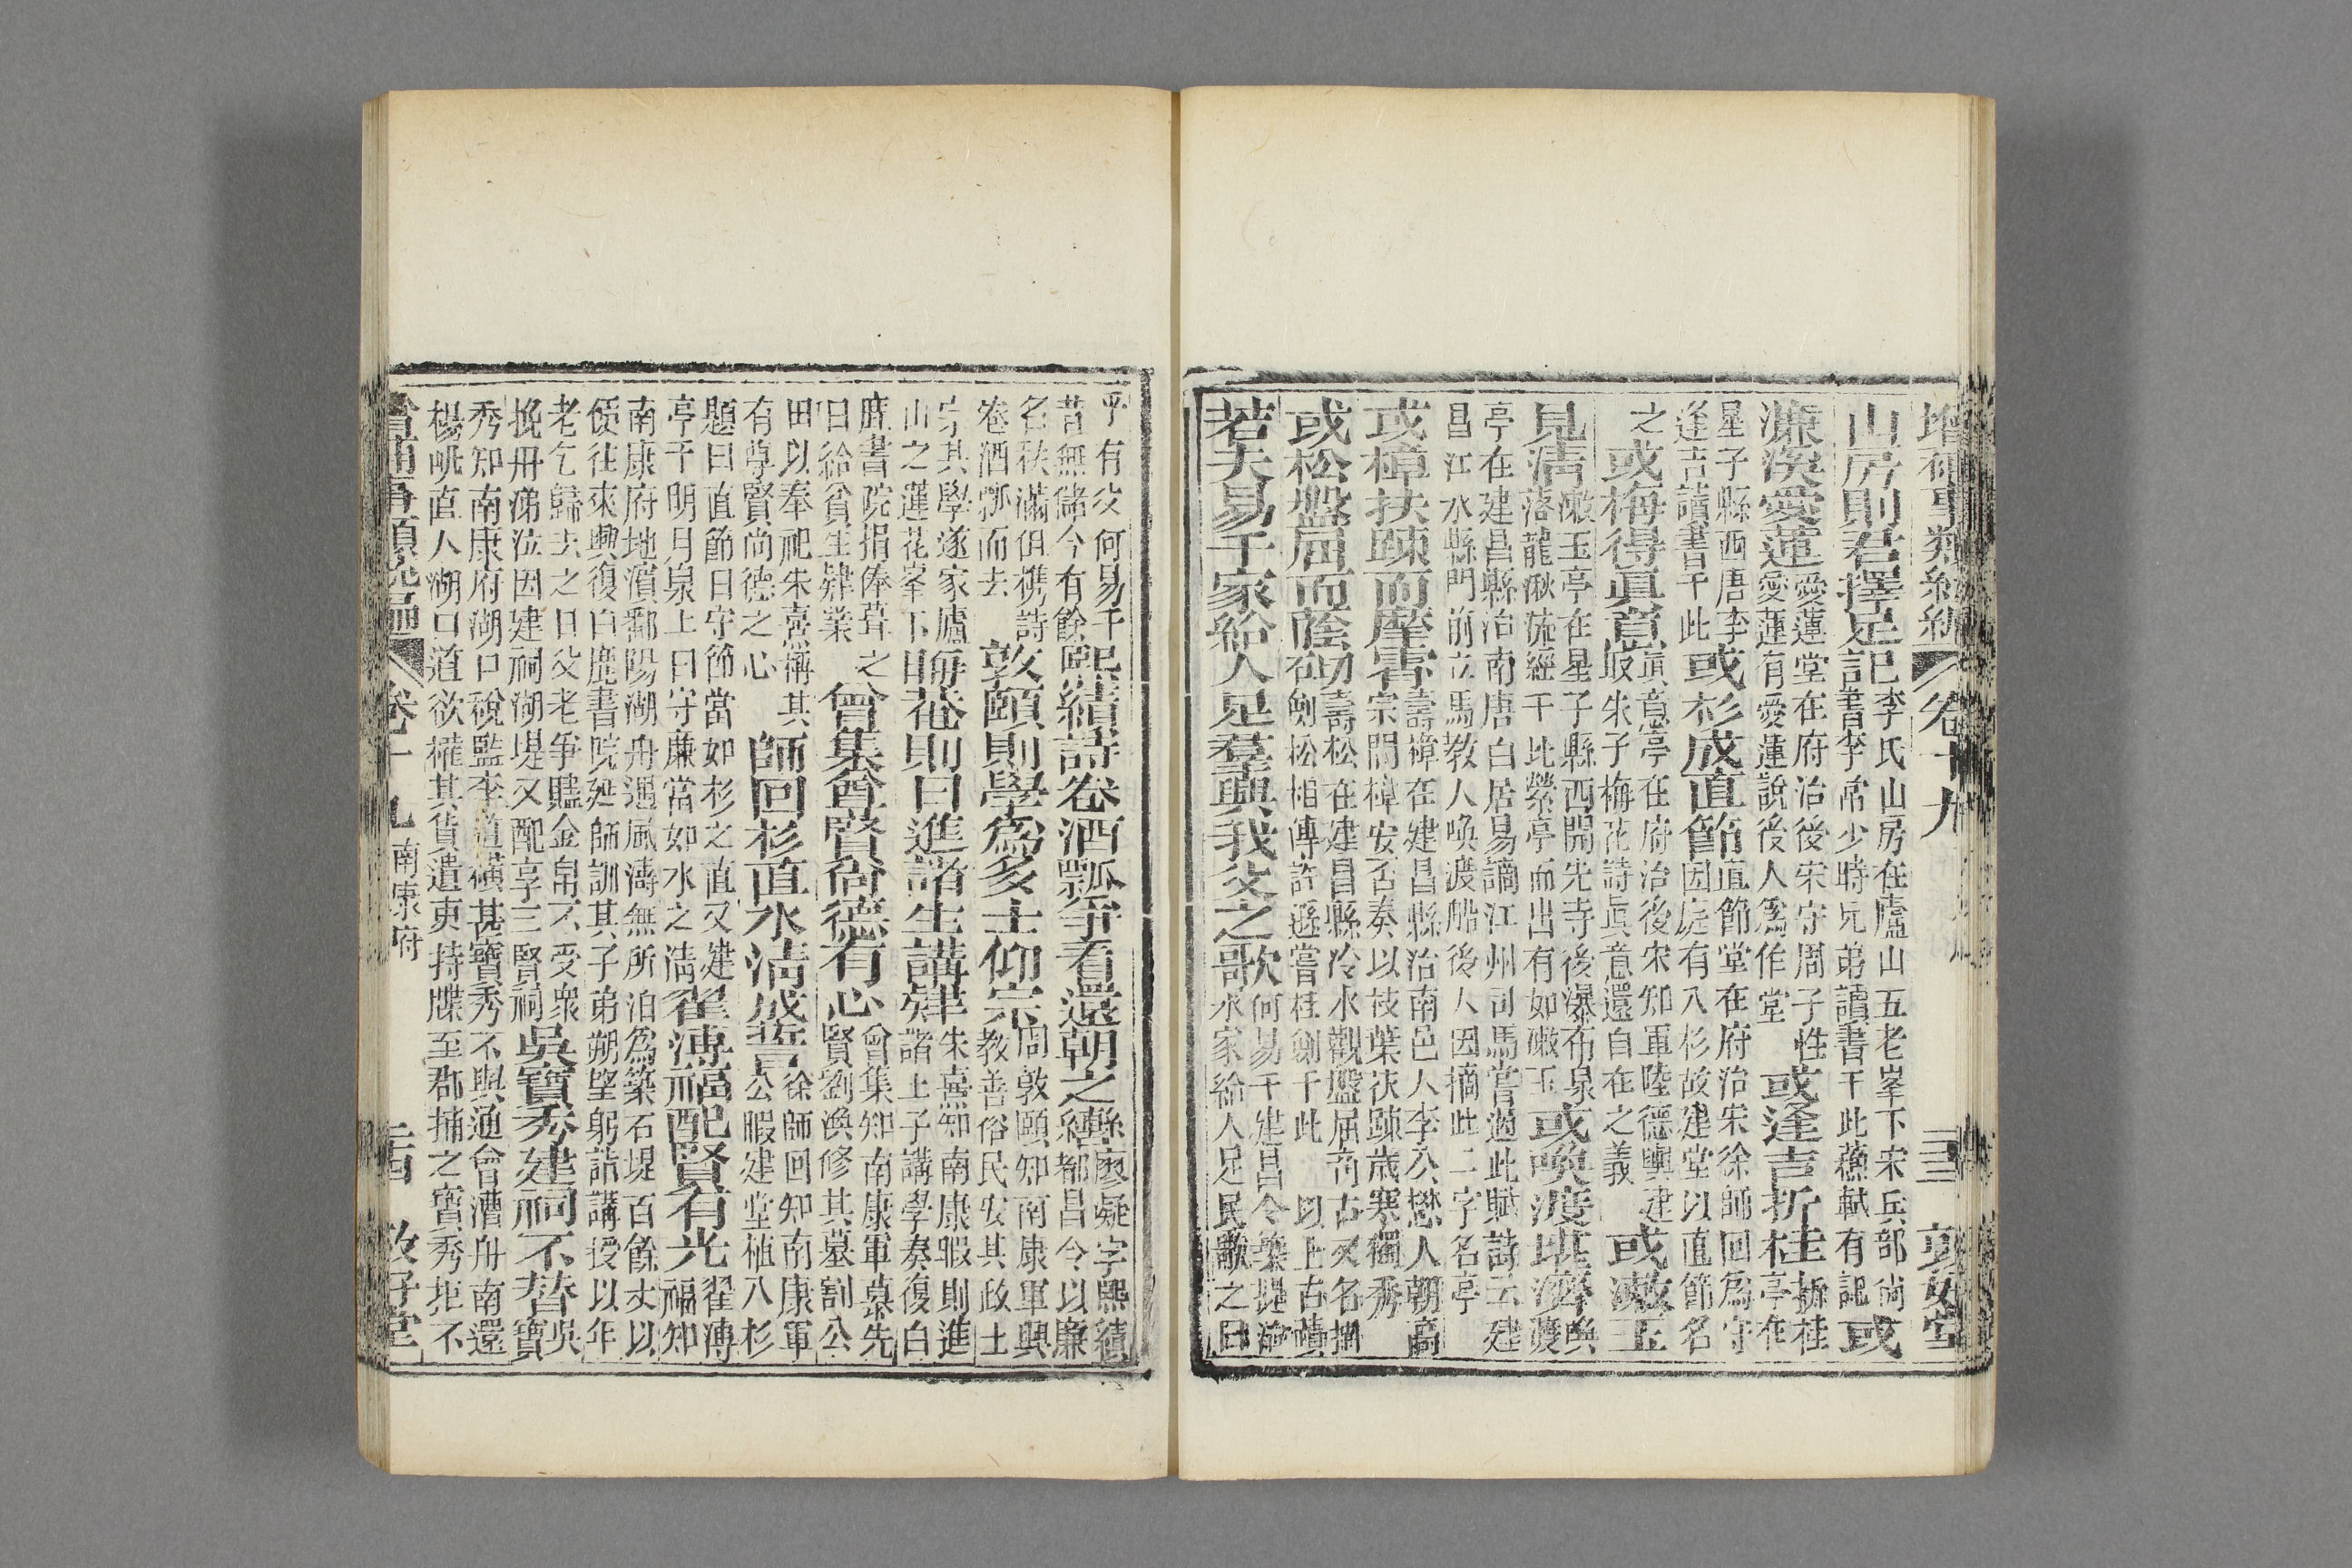 增補事類統編 卷十九
三三 敦好堂
山房則君擇足記
李氏山房在廬山五老峯下宋兵部尚
書李常少時兄弟讀書于此蘇軾有記
或
濂溪愛蓮
愛蓮堂在府治後宋守周子性
愛蓮有愛蓮說後人爲作堂
或逢吉折桂
折桂
亭在
星子縣西唐李
逢吉讀書于此
或杉成直節
直節堂在府治宋徐師回爲守
因庭有八杉故建堂以直節名
之
或梅得眞意
眞意亭在府治後宋知軍陸德輿建
取朱子梅花詩眞意還自在之義
或漱玉
見清
漱玉亭在星子縣西開先寺後瀑布泉
落龍湫流經于此縈亭而出有如漱玉
或喚渡堪濟
喚
渡
亭在建昌縣治南唐白居易謫江州司馬嘗過此賦詩云建
昌江水縣門前立馬教人喚渡船後人因摘此二字名亭
或樟扶踈而摩霄
壽樟在建昌縣治南邑人李公懋入朝高
宗問樟安否奏以枝葉扶踈歲寒獨秀
或松盤屈而蔭砌
壽松在建昌縣冷水觀盤屈高古又名掛
劍松相傳許遜嘗挂劍于此 以上古蹟
若夫易于家給人足羣興我父之歌
何易于建昌令築堤渝
水家給人足民歌之曰
乎有父何易于
昔無儲今有餘
熙績詩卷酒瓢爭看還朝之轎
縣廖凝字熙績
都昌令以廉
名秩滿但携詩
卷酒瓢而去
敦頤則學爲多士仰宗
周敦頤知南康軍興
教善俗民安其政士
宗其學遂家廬
山之蓮花峯下
晦菴則日進諸生講肄
朱熹知南康暇則進
諸士子講學奏復白
鹿書院捐俸葺之
日給貧生肄業
曾集尊賢尚德有心
曾集知南康軍慕先
賢劉渙修其墓割公
田以奉祀朱熹稱其
有尊賢尚德之心
師回杉直水清成誓
徐師回知南康軍
公暇建堂植八杉
題曰直節曰守節當如杉之直又建
亭于明月泉上曰守廉當如水之清
翟溥福配賢有光
翟溥
福知
南康府地濱鄱陽湖舟遇風濤無所泊爲築石堤百餘丈以
便往來興復白鹿書院延師訓其子弟朔望躬詣講授以年
老乞歸去之日父老爭贐金帛不受衆
挽舟涕泣因建祠湖堤又配享三賢祠
吳寶秀建祠不替
吳
寶
秀知南康府湖口稅監李道橫甚寶秀不與通會漕舟南還
楊帆直入湖口道欲榷其貨遣吏持牒至郡捕之寶秀拒不
增補事類統編 卷十九 南康府
敦好堂